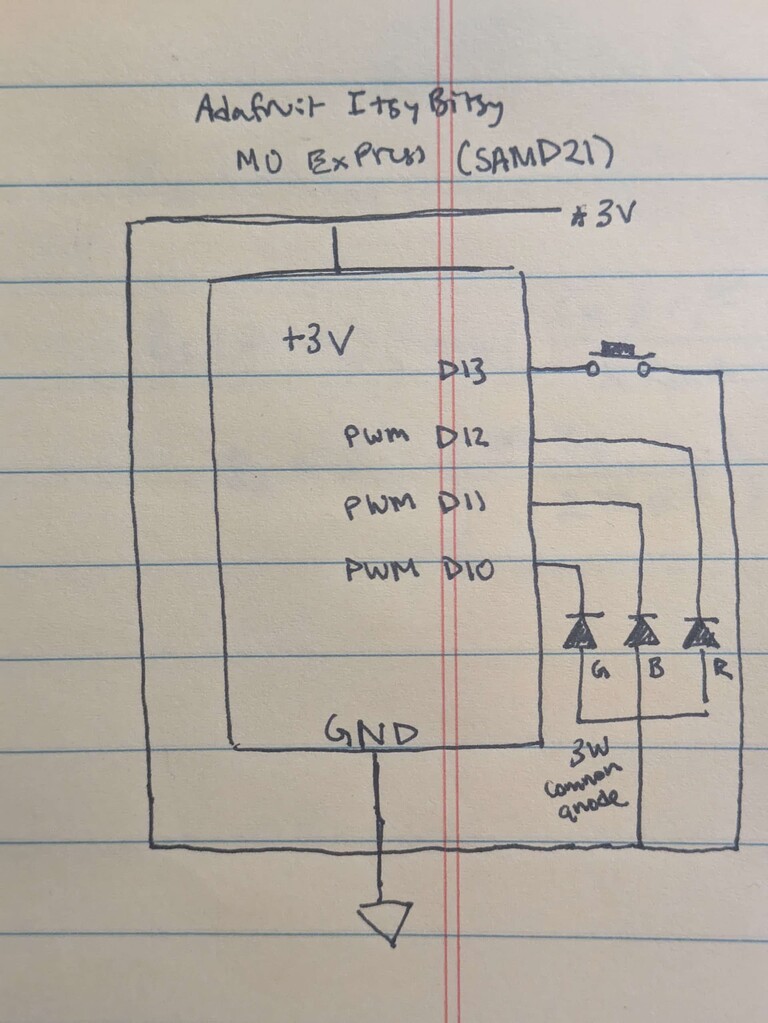 Adafruit ItsyBitsy
M0 Express (SAMD21)
+3V
+3V
D13
PWM D12
PWM D11
PWM D10
G B R
GND
3W
common
anode